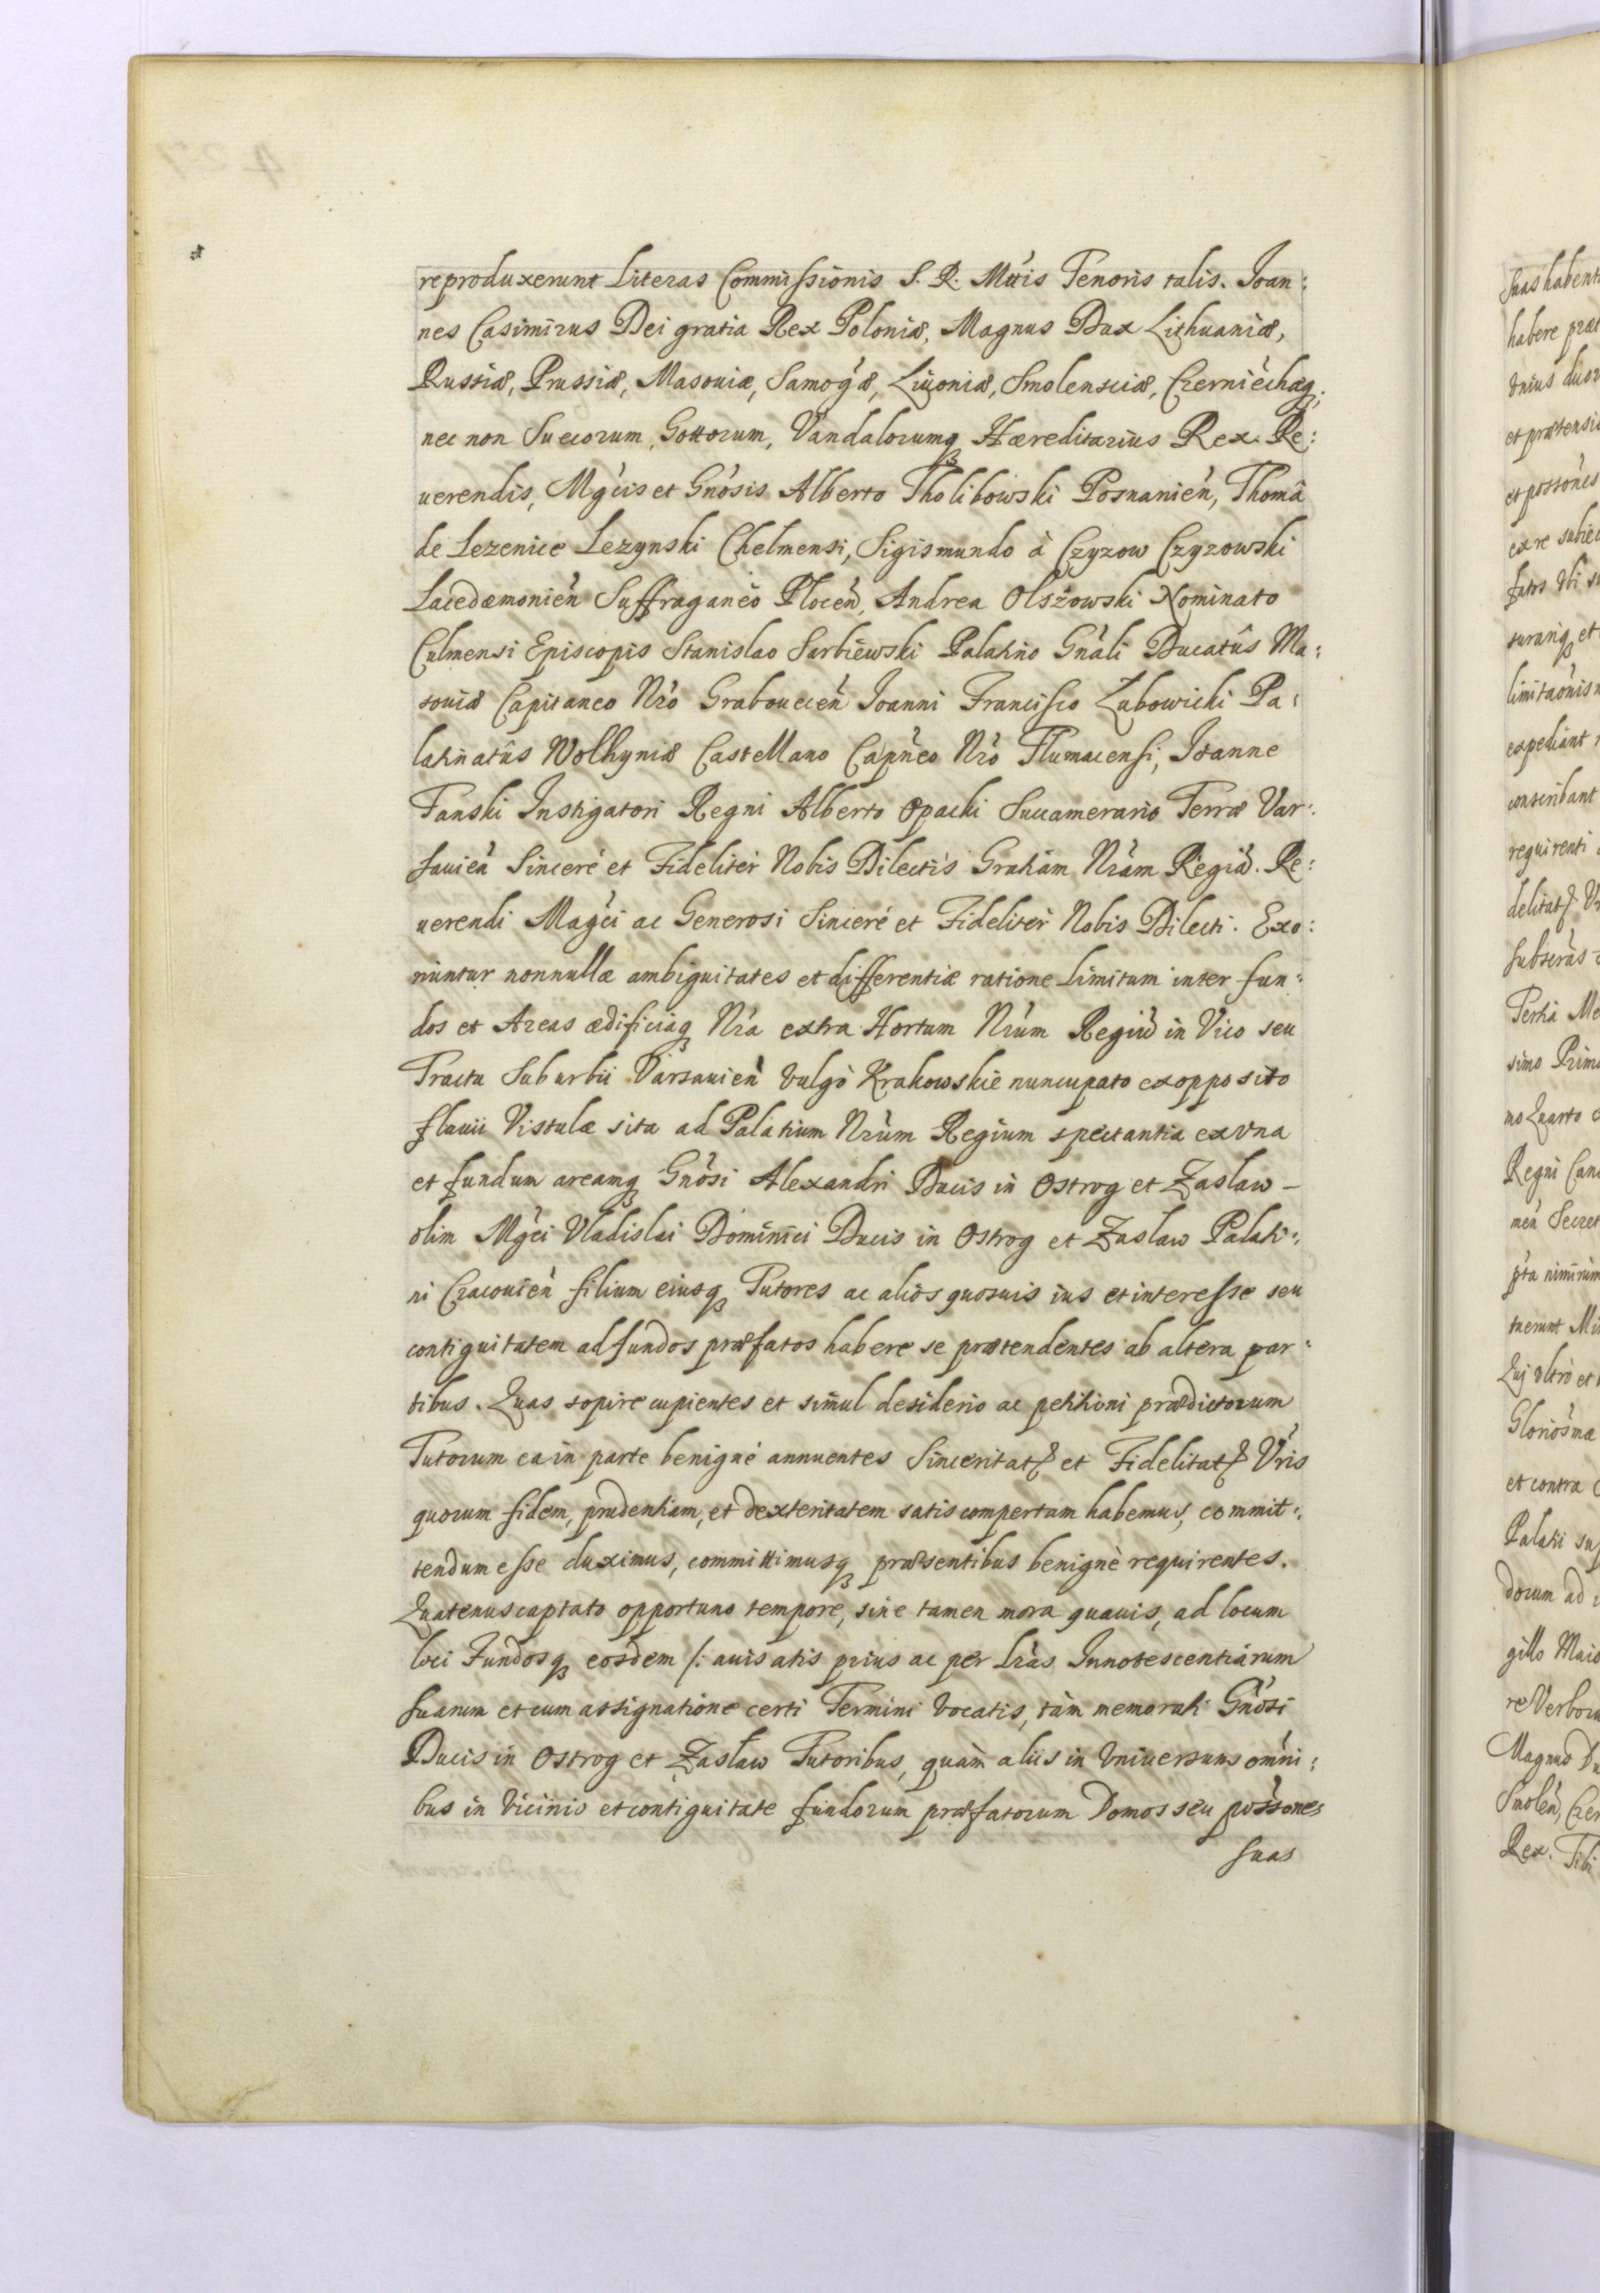 reproduxerunt Literas Commissionis S. R. Mttis Tenoris talis. Joan:
nes Casimirus Dei gratia Rex Poloniæ, Magnus Dux Lithuaniæ,
Russiæ, Prussiæ, Masouiæ, Samogæ, Liuoniæ, Smolensciæ, Czerniechæq;
nec non Suecorum, Gottorum, Vandalorumq Hæreditarius Rex. Re:
uerendis, Mgcis et Gnosis Alberto Tholibowski Posnanien, Thomâ
de Lezenice Lezynski Chelmensi, Sigismundo à Czyzow Czyzowski
Lacedæmonien Suffraganeo Plocen, Andrea Olszowski Nominato
Culmensi Episcopis Stanislao Sarbiewski Palatino Gnali Ducatûs Ma:
souiæ Capitaneo Nro Grabouecen Joanni Francisco Lubowicki Pa:
latinatûs Wolhyniæ Castellano Capneo Nro Tlumacensi, Joanne
Tanski Instigatori Regni Alberto Opacki Succamerario Terræ Var:
sauien Sinceré et Fideliter Nobis Dilectis Gratiam Nram Regiã. Re:
uerendi Magci ac Generosi Sinceré et Fideliter Nobis Dilecti. Exo:
riuntur nonnullæ ambiguitates et differentiæ ratione Limitum inter fun:
dos et Areas ædificiaq Nra extra Hortum Nrum Regiũ in Vico seu
Tractu Suburbii Varsauien vulgò Krakowskie nuncupato ex opposito
fluuii Vistulæ sita ad Palatium Nrum Regium spectantia ex vna
et fundum areamq Gnosi Alexandri Ducis in Ostrog et Zaslaw –
olim Mgci Vladislai Dominici Ducis in Ostrog et Zaslaw Palati:
ni Cracouien filium eiusq Tutores ac alios quosuis ius et interesse seu
contiguitatem ad fundos præfatos habere se prætendentes ab altera par:
tibus. Quas sopire cupientes et simul desiderio ac petitioni prædictorum
Tutorum ea in parte benigné annuentes Sinceritat et Fidelitat Vris
quorum fidem, prudentiam, et dexteritatem satis compertam habemus, commit:
tendum esse duximus, committimusq præsentibus benigné requirentes.
Quatenus captato opportuno tempore, sine tamen mora quauis, ad locum
loci Fundosq eosdem /: auisatis prius ac per Lras Innotescentiarum
suarum et cum assignatione certi Termini vocatis, tàm memorati Gnosi
Ducis in Ostrog et Zaslaw Tutoribus, quàm aliis in vniuersum omni:
bus in vicinio et contiguitate fundorum præfatorum Domos seu possones
suas